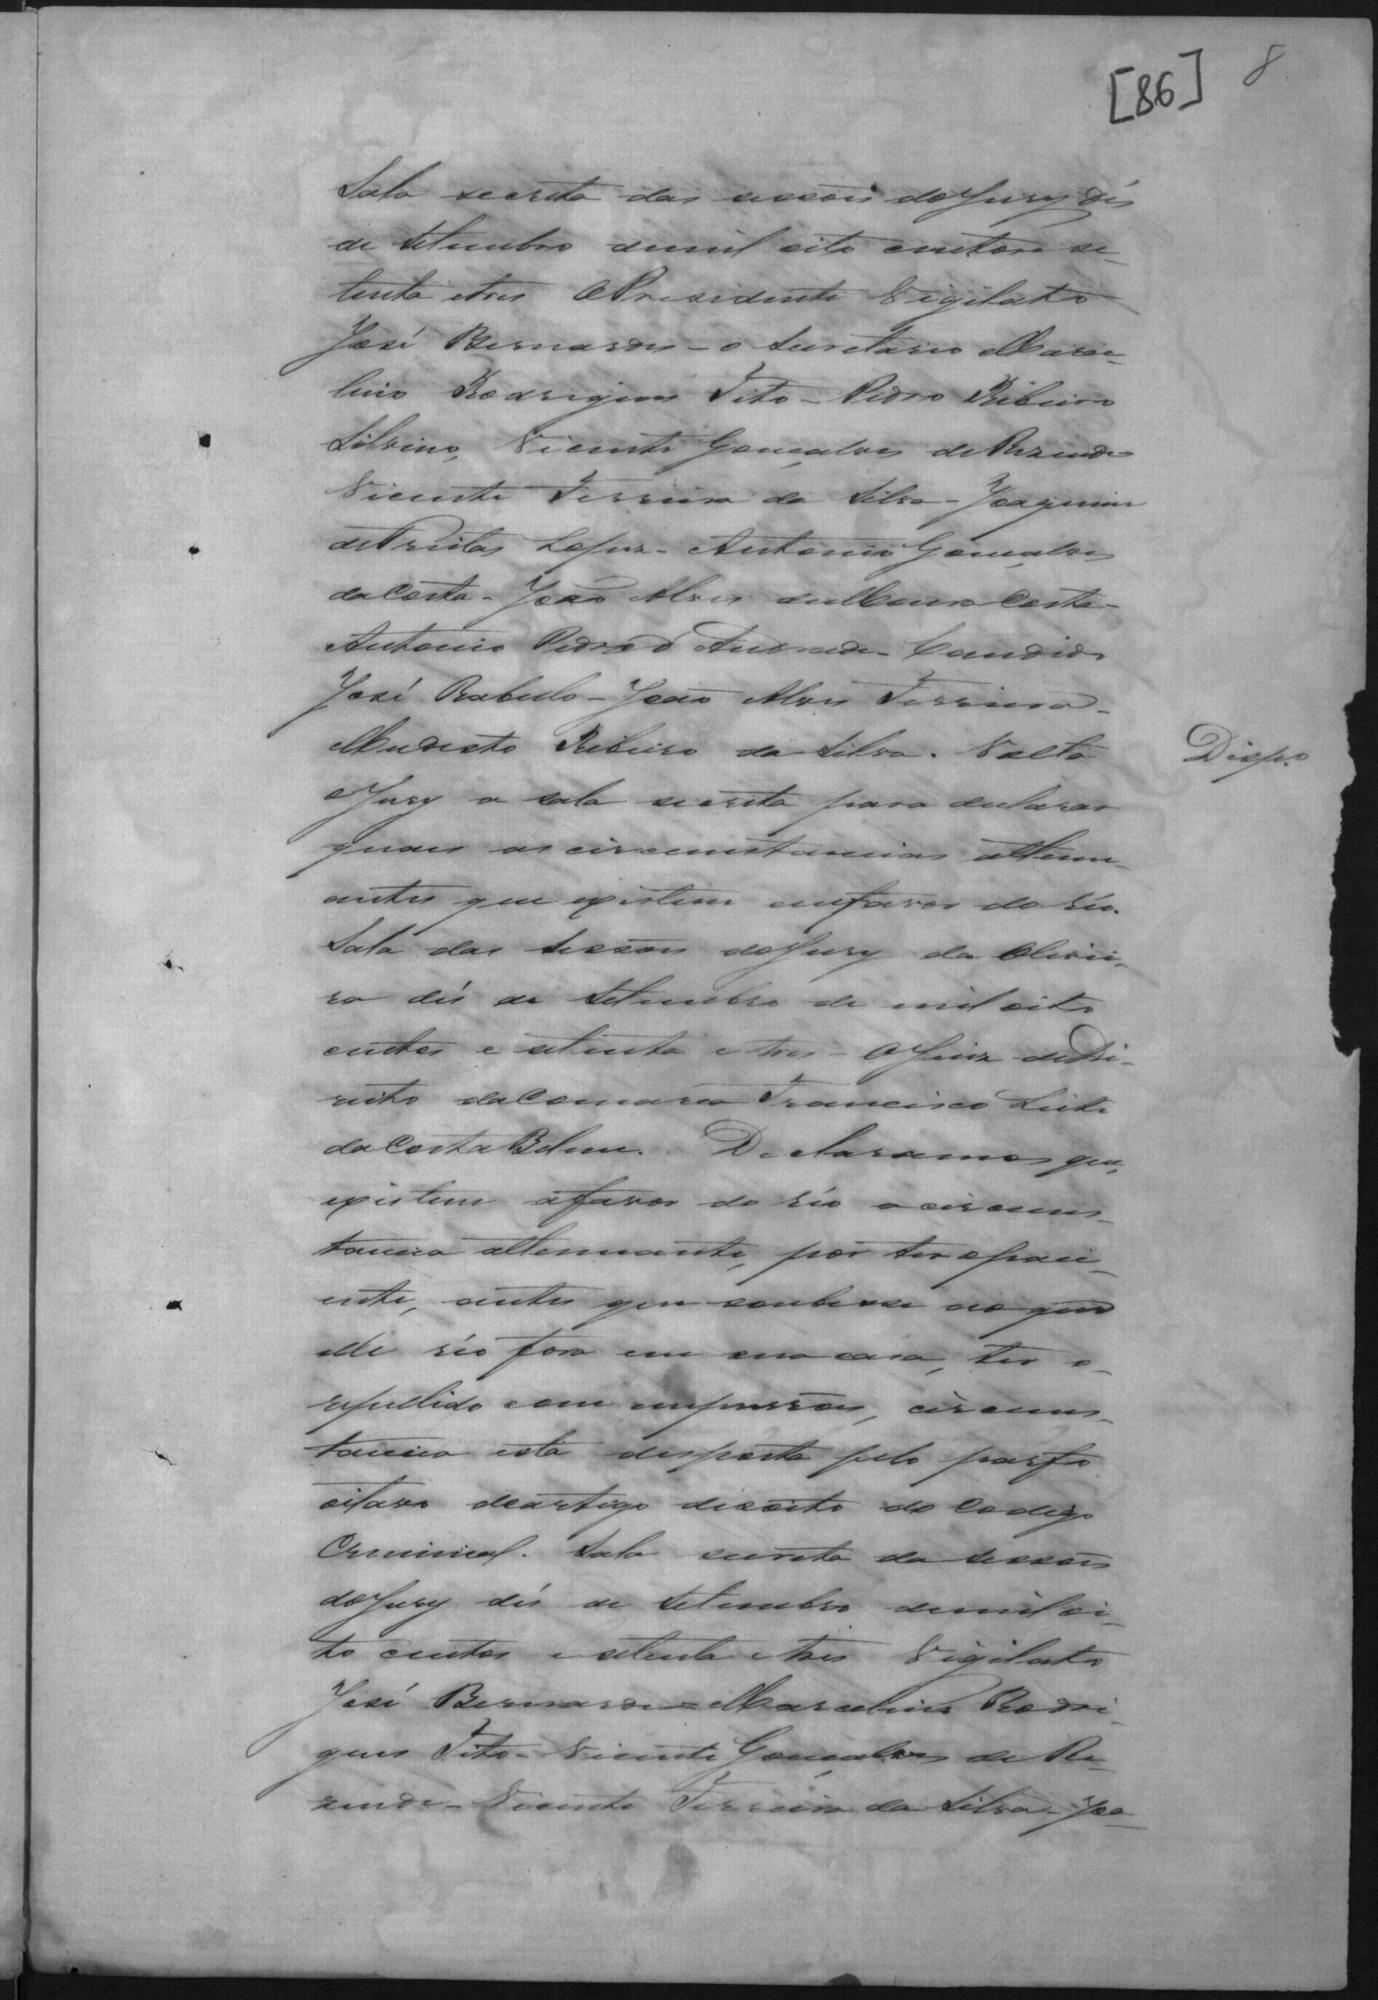 [86] 8
Sala secreta das sessões do Jury dés
de Setembro de mil oito centos se-
tenta e tres O Presidente Vigilato
José Bernardes - o Secretario Marce-
lino Rodrigues Tito - Pedro Ribeiro
Silvino, Vicente Gonçalves de Rezende
Vicente Ferreira da Silva - Joaquim
de Freitas Lopes - Antonio Gonçalves
da Costa - João Alves de Moura Costa -
Antonio Pedro d Andrade - Candido
José Rabello - João Alves Ferreira -
Modesto Ribeiro da Silva. Volta
o Jury a sala secreta para declarar
quaes as circunstancias attenu-
antes que existem em favor do réo.
Sala das sessões do Jury da Olivei-
ra dés de Setembro de mil oito
centos e setenta e tres - O Juiz de Di-
reito da Comarca Francisco Leite
da Costa Belem. Declaramos que
existem a favor do réo a circuns-
tancia attenuante, por ter o paci-
ente, antes que soubesse ao que
elle réo fora em sua casa, ter o
repellido com empurrões, circuns-
tancia esta disposta pelo parfo
oitavo do artigo dezoito do Codigo
Criminal. Sala secreta da sessões
do Jury dés de Setembro de mil oi-
to centos e setenta e tres Vigilato
José Bernardes - Marcelino Rodri-
gues Tito - Vicente Gonçalves de Re-
zende - Vicente Ferreira da Silva - Joa-
Desp.o